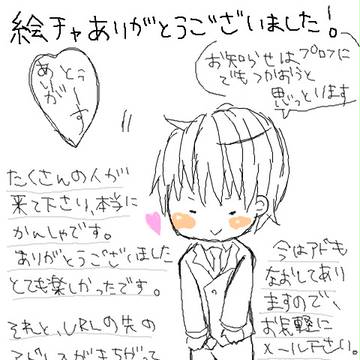 絵チャありがとうございました!
お知らせはプロフに
でもつかおうと
思っとります
ありが
とぅーす
たくさんの人が
来て下さり、本当に
かんしゃです。
ありがとうございました
とても楽しかったです。
それと、URLの先の
アドレスがまちがって
今はアドも
なおしてあり
ますので、
お気軽に
メール下さい。